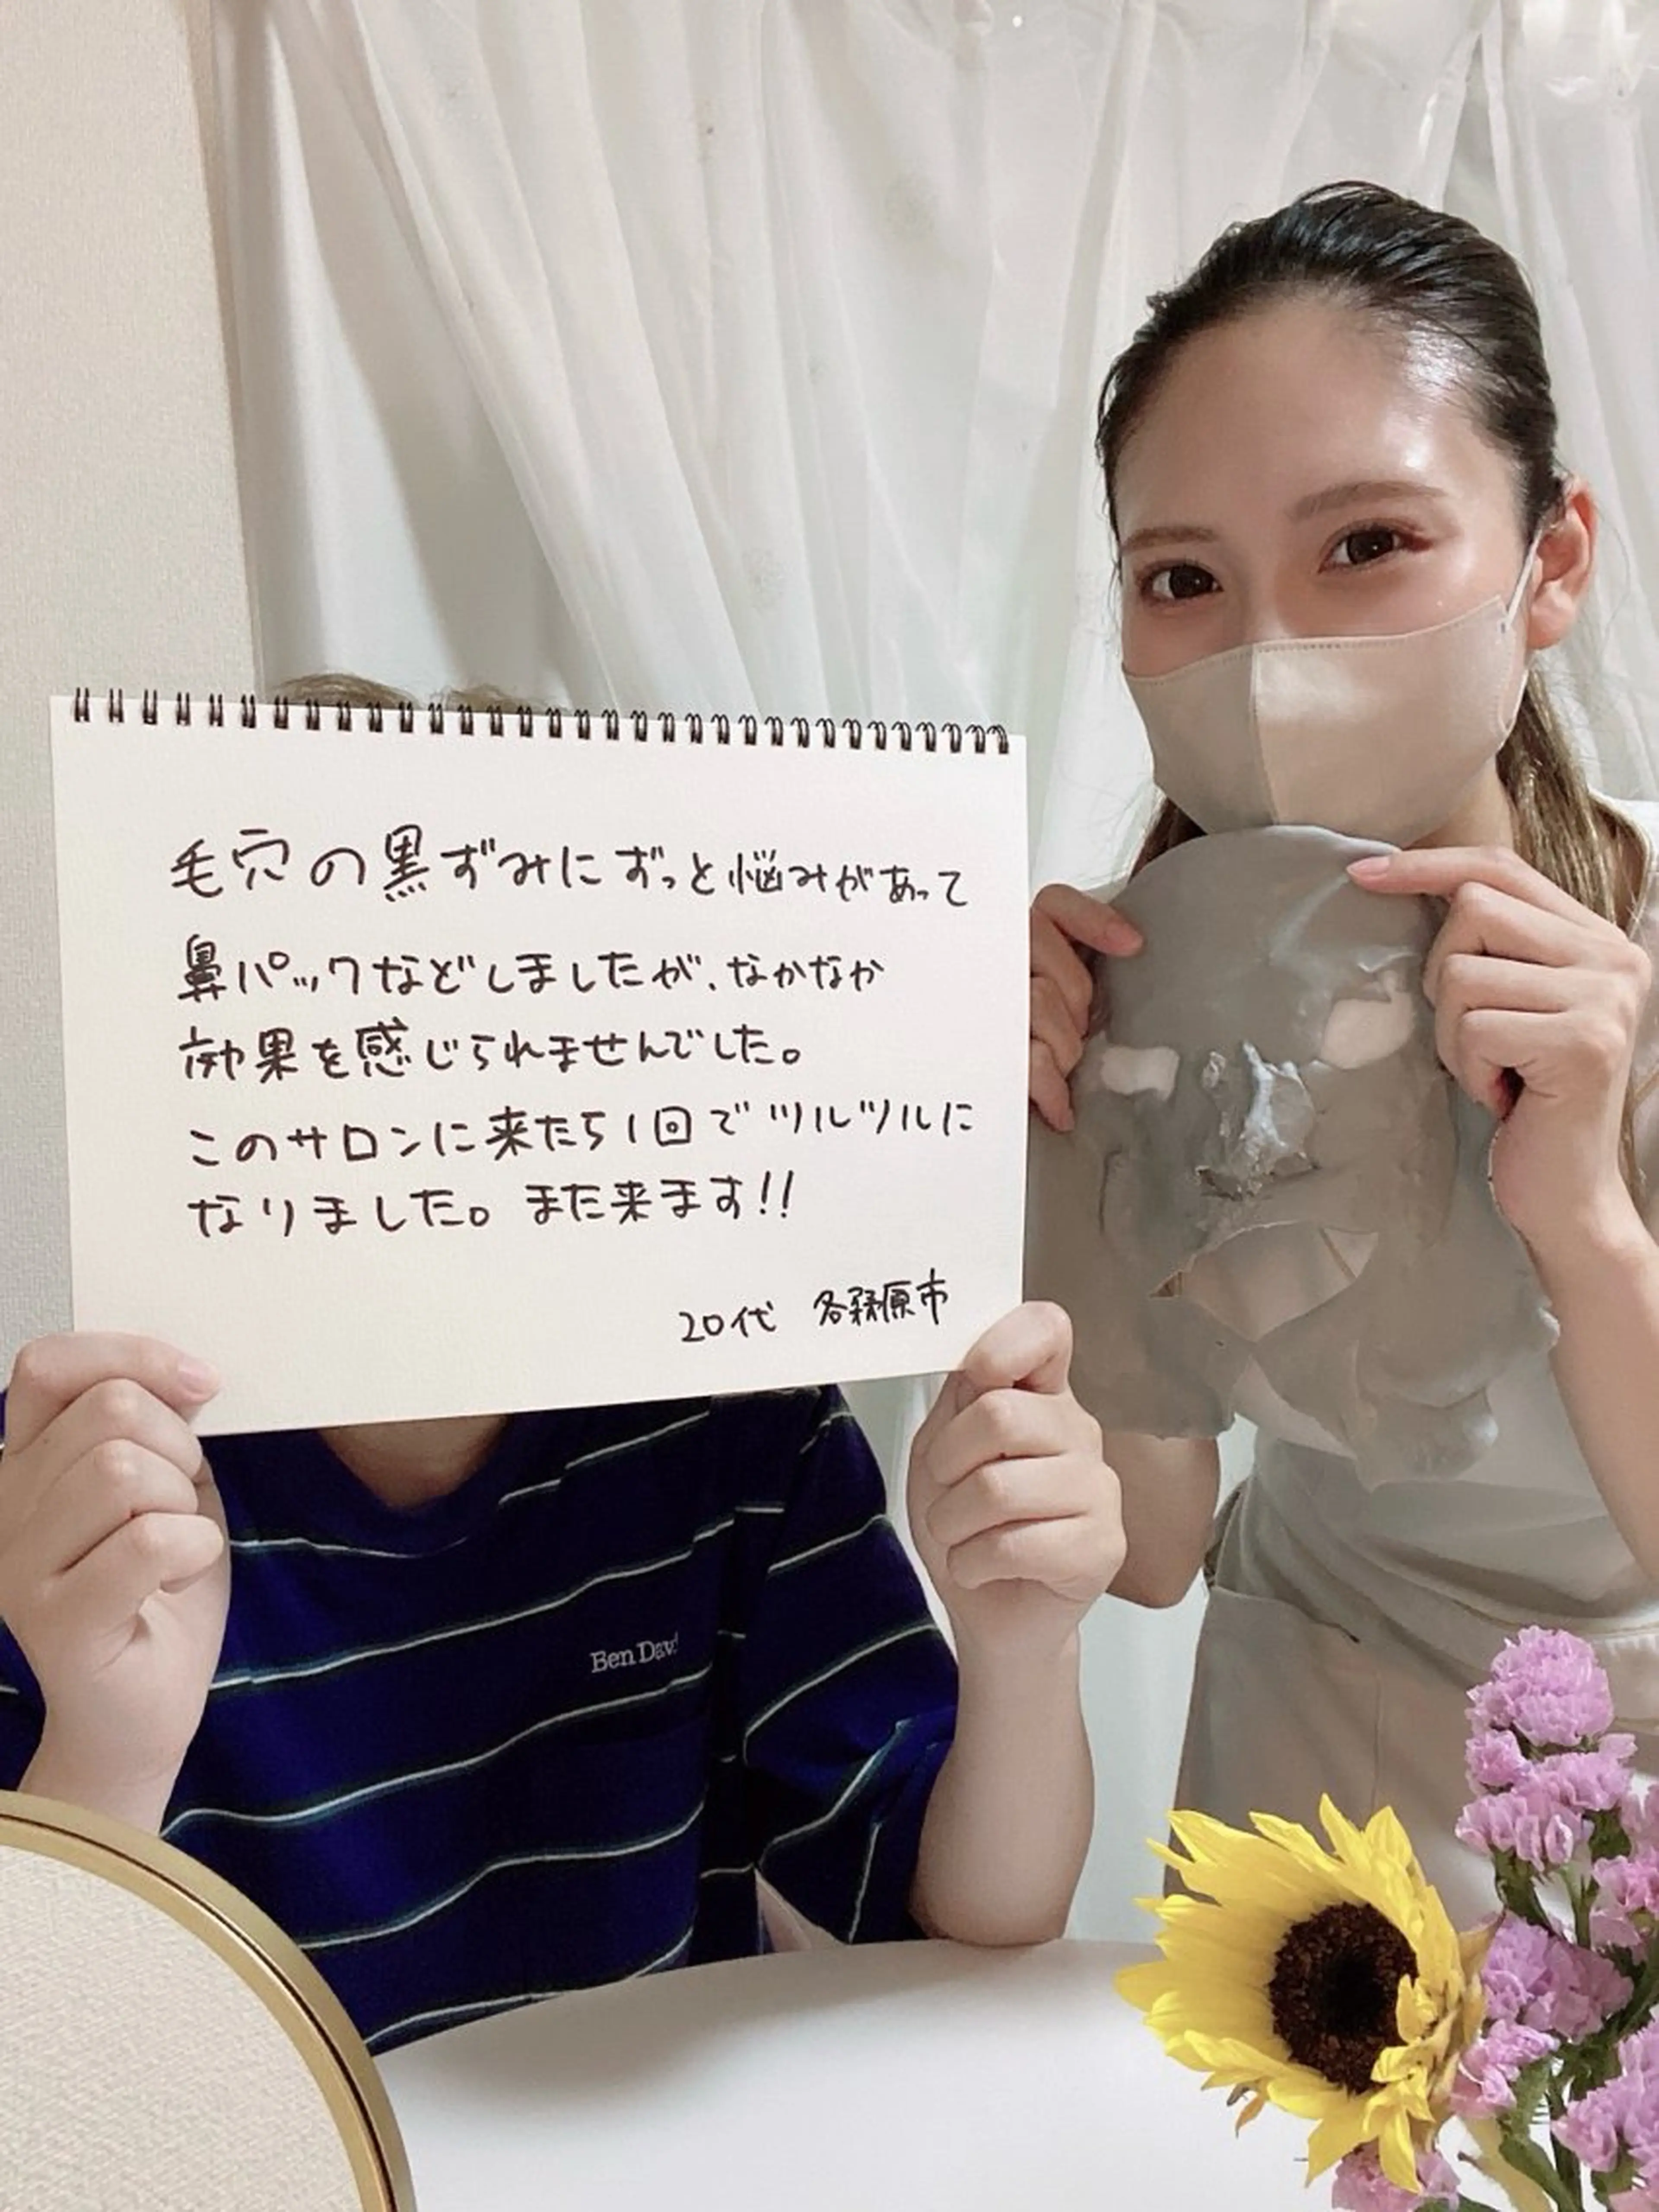 毛穴の黒ずみにずっと悩みがあって
鼻パックなどしましたが、なかなか
効果を感じられませんでした。
このサロンに来たら1回でツルツルに
なりました。また来ます!!
20代 各務原市
Ben Davi